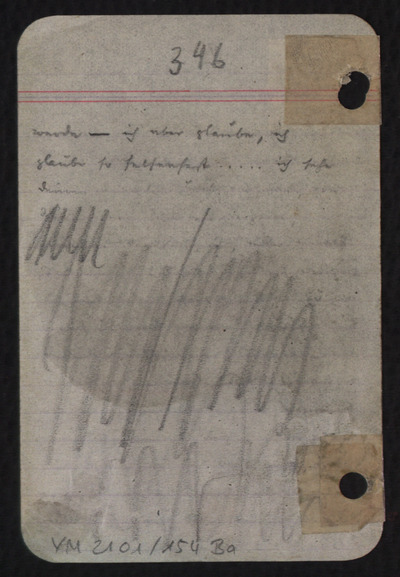 346
werde — ich aber glaube, ich
glaube so felsenfest ..... ich sehe
VM 2101/154 Ba